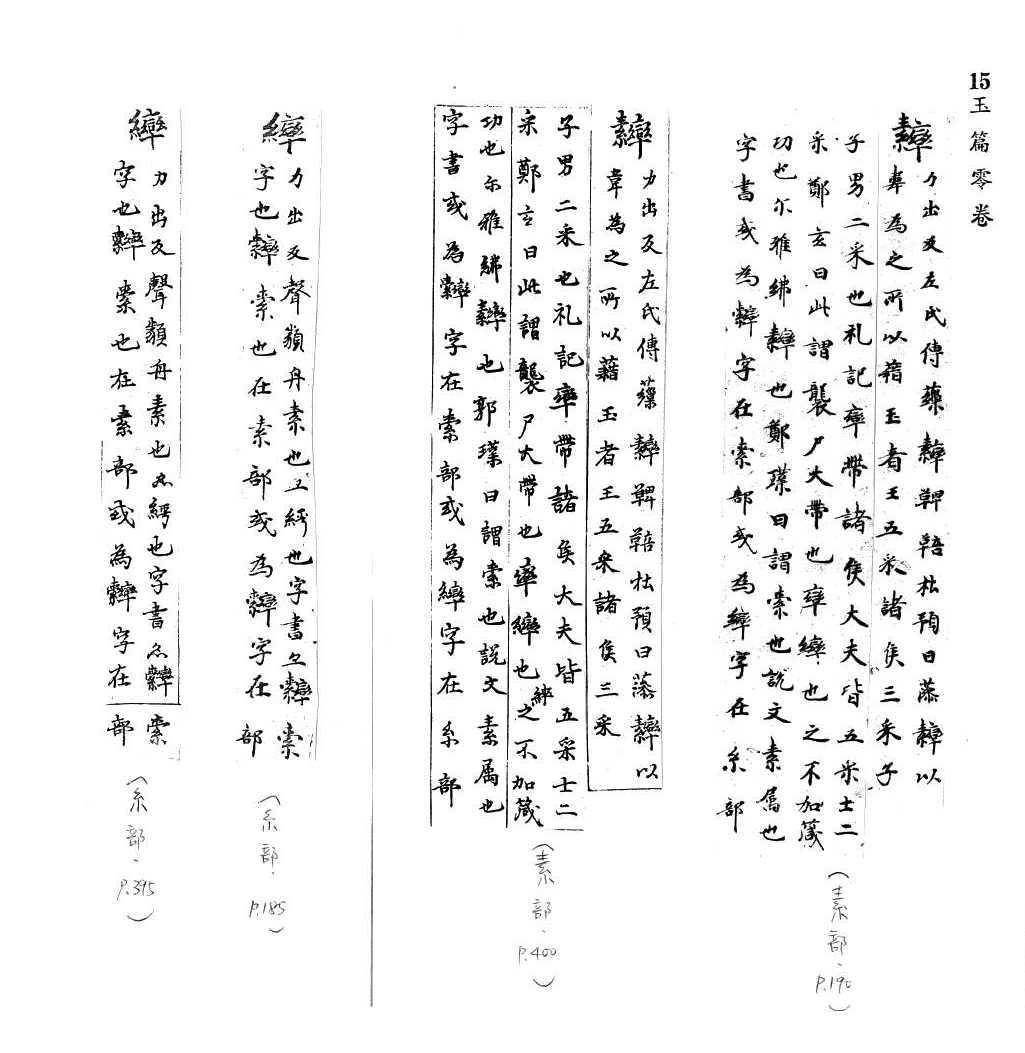 15
玉篇零卷
𦆕
力出反左氏傳藻𦆕鞞鞛杜預曰藻𦆕以
韋為之所以藉玉者王五采諸侯三采子
子男二采也礼記率帶諸侯大夫皆五采士二
采鄭玄曰此謂襲尸大帶也率繂也之不加箴
功也尒雅紼𦆕也鄭璞曰謂索也說文素属也
字書或為繂字在索部或為繂字在糸部
(素部、P.190)
力出反左氏傳藻𦆕鞞鞛杜預曰藻𦆕以
韋為之所以藉玉者王五采諸侯三采
子男二采也礼記率帶諸侯大夫皆五采士二
采鄭玄曰此謂襲尸大帶也率繂也縫之不加箴
功也尒雅紼𦆕也郭璞曰謂索也說文素属也
字書或為字在索部或為繂字在糸部
(素部、P.400)
繂
力出反聲類舟素也亦繂也字書亦索
字也索也在素部或為字在部
(糸部、P.185)
繂
力出反聲類舟素也也字書亦索
字也索也在素部或為字在部
(糸部、P.395)